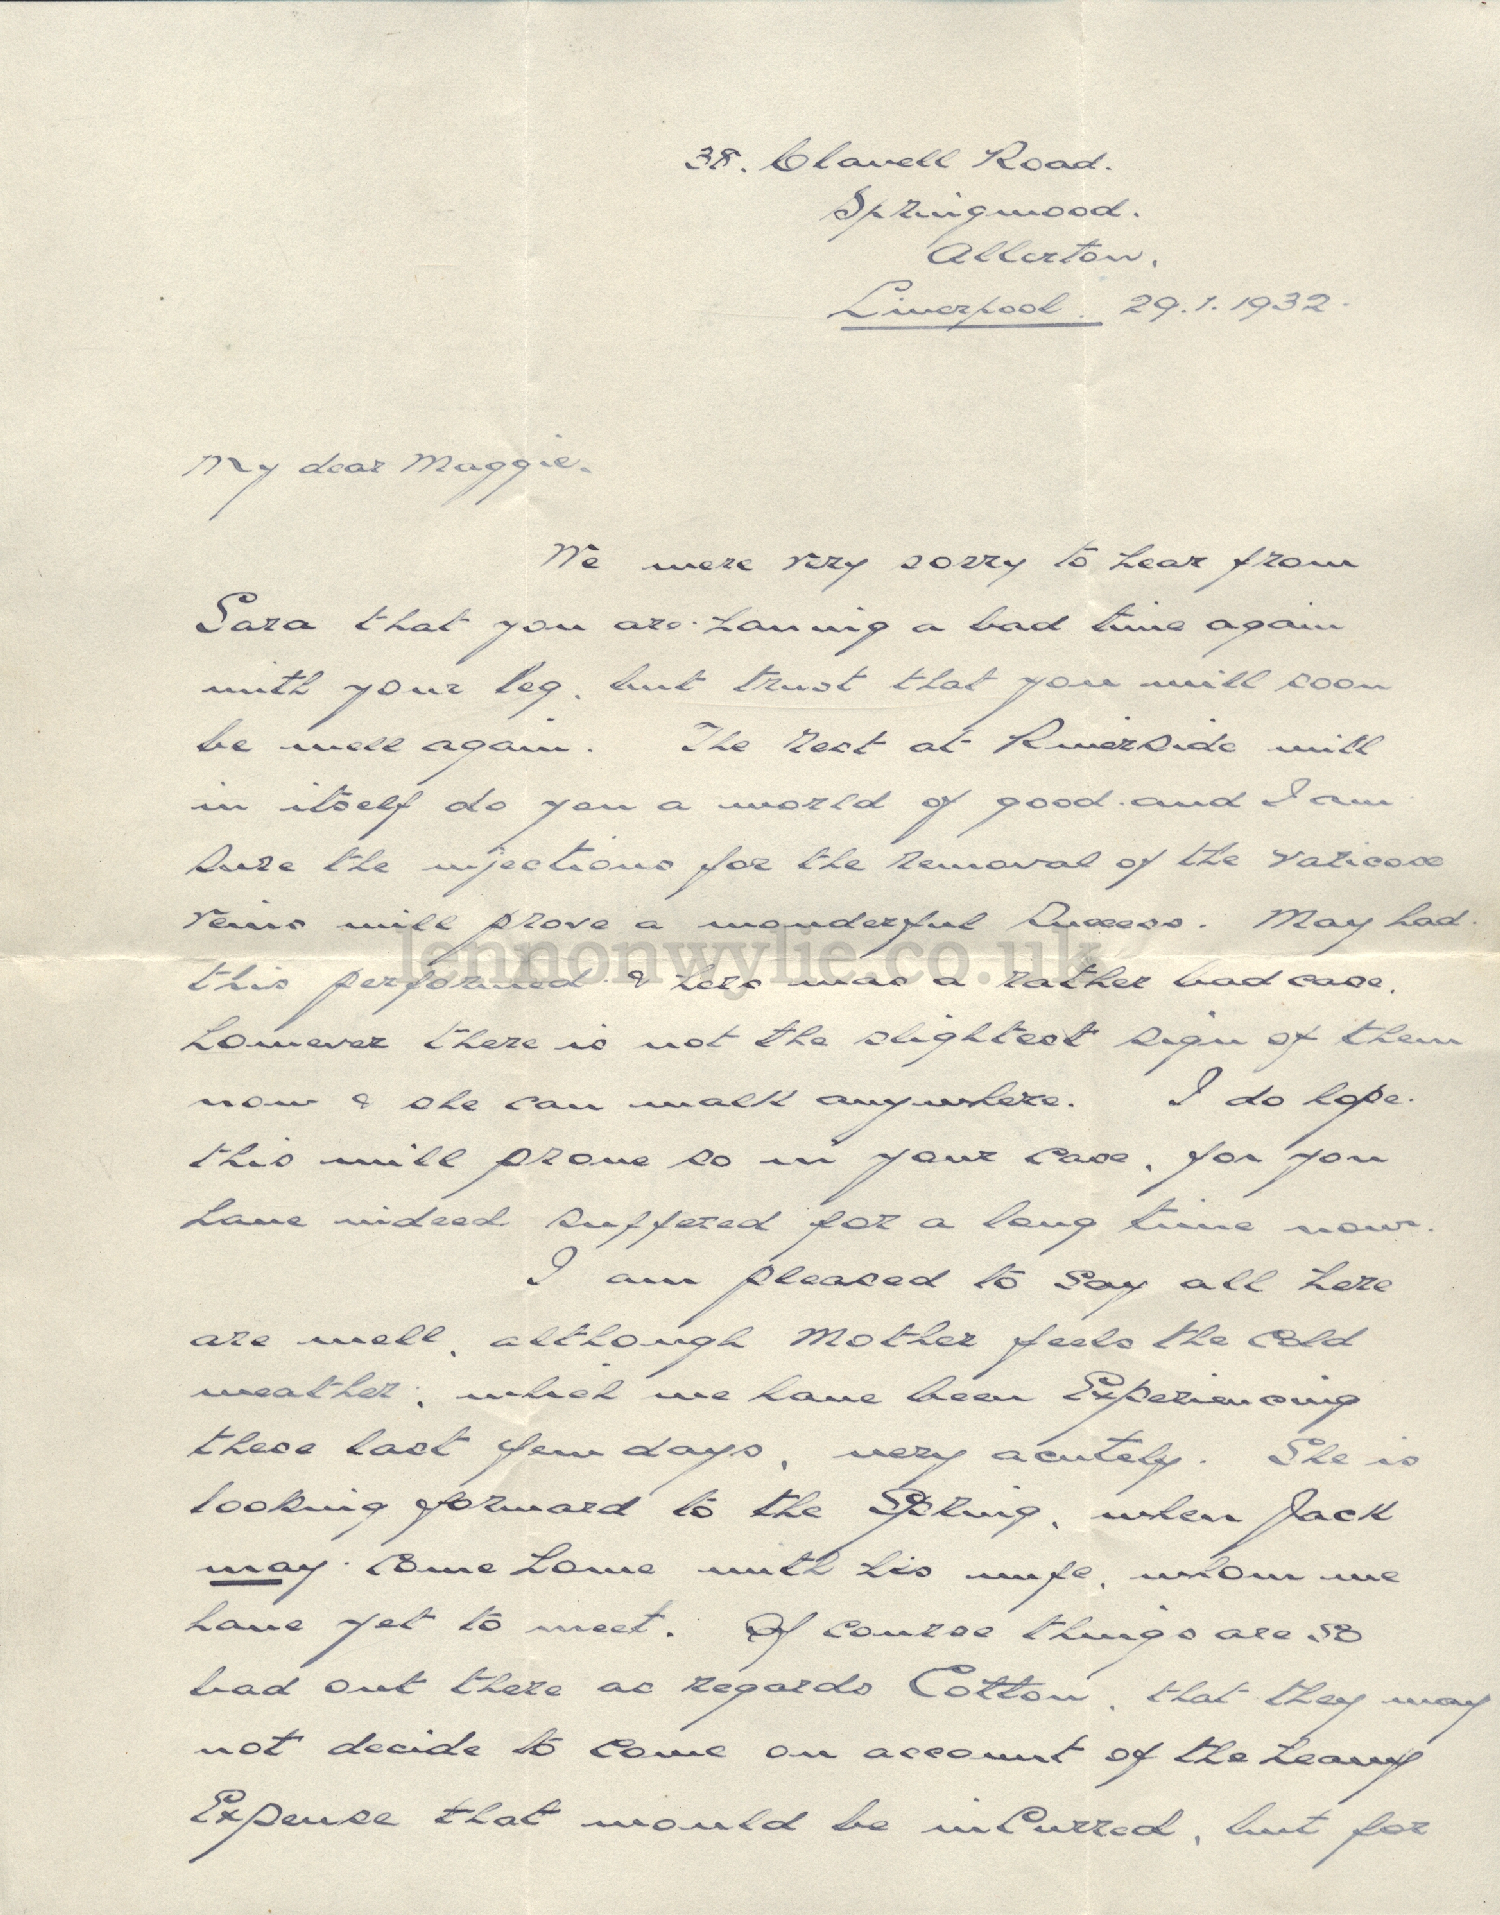 38. Clavell Road.
Springwood.
Allerton.
Liverpool. 29.1.1932.
My dear Maggie.
We were very sorry to hear from
Sara that you are having a bad time again
with your leg, but trust that you will soon
be well again. The rest at Riverside will
in itself do you a world of good and I am
sure the injections for the removal of the varicose
veins will prove a wonderful success. May had
this performed & hers was a rather bad case,
however there is not the slightest sign of them
now & she can walk anywhere. I do hope
this will prove so in your case, for you
have indeed suffered for a long time now.
I am pleased to say all here
are well, although Mother feels the cold
weather, which we have been Experiencing
these last few days, very acutely. She is
looking forward to the Spring, when Jack
may come home with his wife, whom we
have yet to meet. Of course things are so
bad out there as regards Cotton, that they may
not decide to come on account of the heavy
Expense that would be inCurred, but for
lennonwylie.co.uk